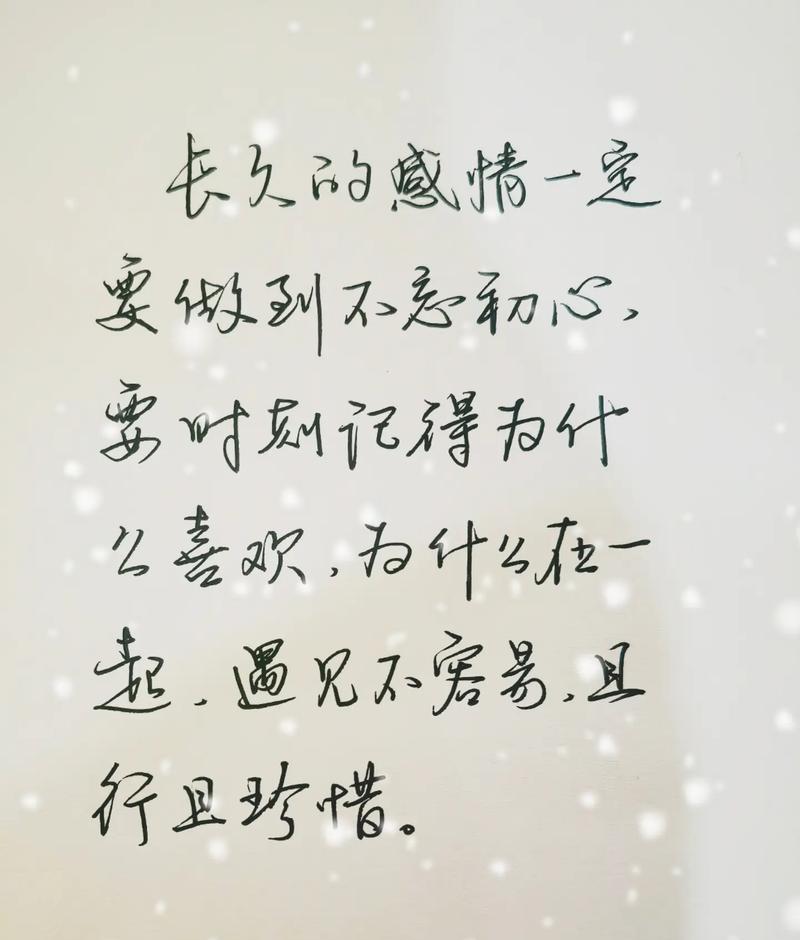 长久的感情一定
要做到不忘初心,
要时刻记得为什
么喜欢,为什么在一
起,遇见不容易,且
行且珍惜。